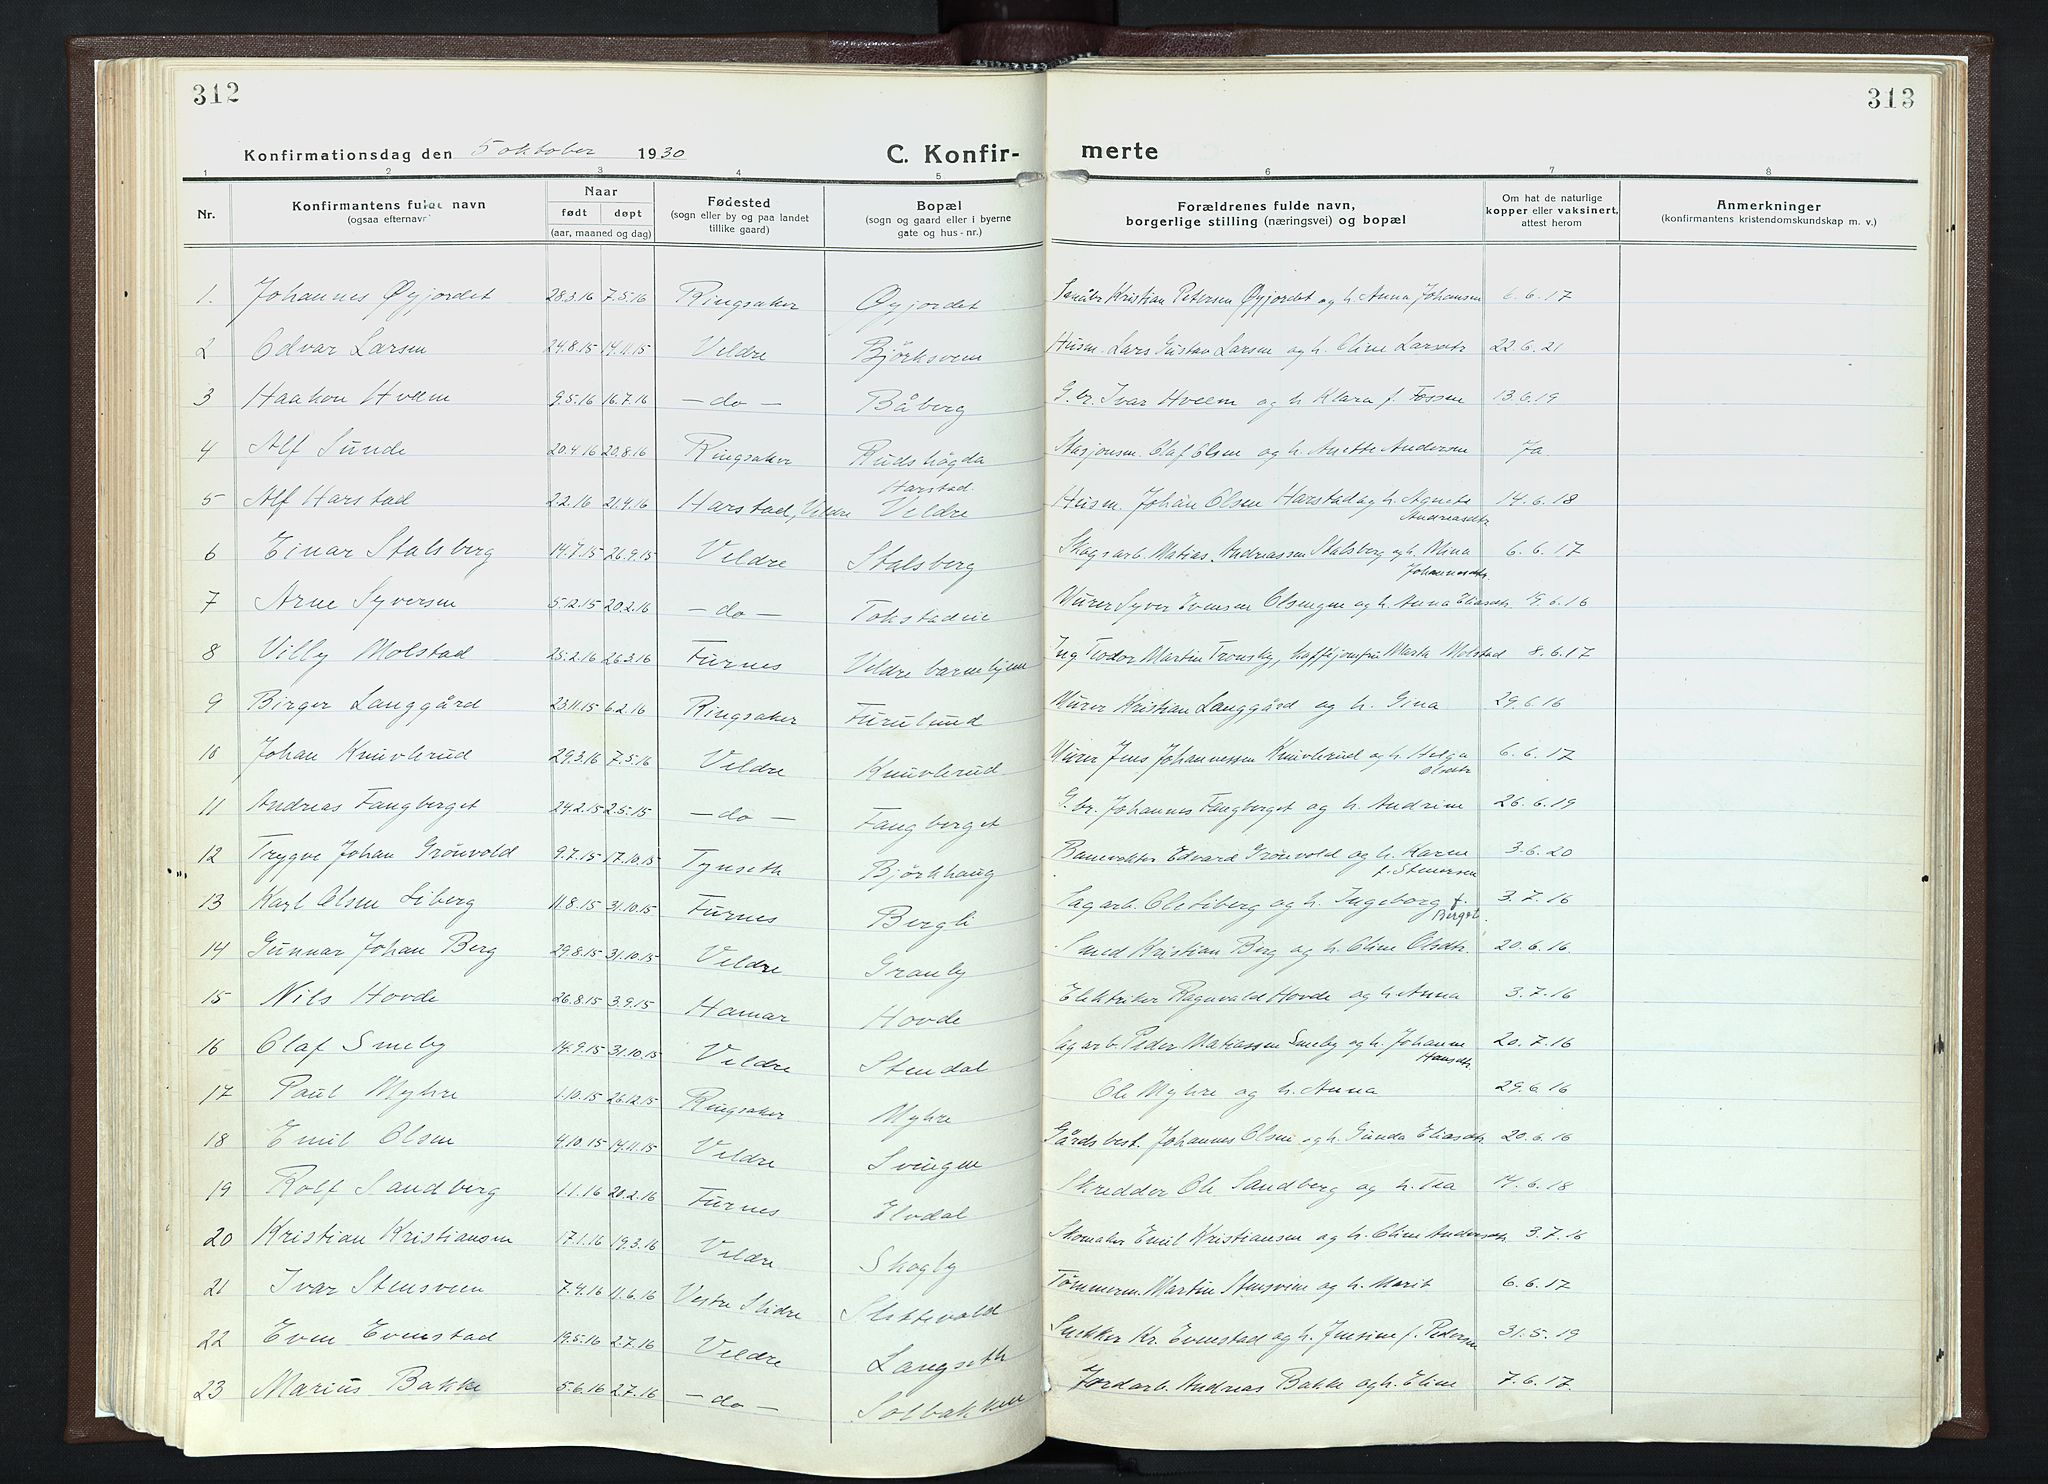 312
313
Konfirmationsdag den 5 oktober 1930
C. Konfir-
merte
1 2 3 4 5 6 7 8
Nr.
Konfirmantens fulde navn
(ogsaa efternavn)
Naar
født døpt
(aar, maaned og dag)
Fødested
(sogn eller by og paa landet
tillike gaard)
Bopæl
(sogn og gaard eller i byerne
gate og hus-nr.)
Forældrenes fulde navn,
borgerlige stilling (næringsvei) og bopæl
Om hat de naturlige
kopper eller vaksinert,
attest herom
Anmerkninger
(konfirmantens kristendomskundskap m. v.)
1. Johannes Øyjordet 28.3.16 7.5.16 Ringsaker Øyjordet Småbr Kristian Petersen Øyjordet og h. Anna Johansen 6.6.17
2 Edvar Larsen 24.8.15 14.11.15 Veldre Björksveen Husm. Lars Gustav Larsen og h. Oline Larsdtr 22.6.21
3 Haakon Hveem 9.5.16 16.7.16 — do — Båberg G. br. Ivar Hveem og h Klara f. Fossen 13.6.19
4 Alf Sunde 20.4.16 20.8.16 Ringsaker Rudshögda Stasjonsm. Olaf Olsen og h. Anette Andersen Ja
5 Alf Harstad 2.2.16 21.4.16 Harstad, Veldre Harstad. Veldre Husm. Johan Olsen Harstad og h. Agnete Andreasdtr 14.6.18
6 Einar Stalsberg 14.7.15 26.9.15 Veldre Stalsberg Skogsarb. Matias Andreassen Stalsberg og h. Mina Johannesdtr. 6.6.17
7 Arne Syversen 5.12.15 20.2.16 — do — Tokstadeie Murer Syver Evensen Olsengen og h. Anna Eliasdtr 19.6.16
8 Villy Molstad 25.2.16 26.3.16 Furnes Veldre barnehjem Ing Teodor Martin Tronsby, kaffhjomfru Marta Molstad 8.6.17
9 Birger Langgård 23.11.15 6.2.16 Ringsaker Furulund Murer Kristian Langgård og h. Gina 29.6.16
10 Johan Knuvlerud 29.3.16 7.5.16 Veldre Knuvlerud Murer Jens Johannessen Knuvlerud og h. Helga Olsdtr 6.6.17
11 Andreas Fangberget 24.2.15 2.5.15 — do — Fangberget G. br. Johannes Fangberget og h. Andrine 26.6.19
12 Trygve Johan Grönvold 9.7.15 17.10.15 Tynseth Björkhaug Banevokter Edvard Grönvold og h. Karen f. Stenersen 3.6.20
13 Karl Olsen Liberg 11.8.15 31.10.15 Furnes Bergli Sagarb. Ole Liberg og h. Ingeborg f. Berget. 3.7.16
14 Gunnar Johan Berg 29.8.15 31.10.15 Veldre Granly Smed Kristian Berg og h. Oline Olsdtr. 20.6.16
15 Nils Hovde 26.8.15 3.9.15 Hamar Hovde Elektriker Ragnvald Hovde og h. Anna 3.7.16
16 Olaf Smeby 14.9.15 31.10.15 Veldre Stendal Sagarb. Peder Matiassen Smeby og h. Johanne Hansdtr. 20.7.16
17 Paul Myhre 1.10.15 26.12.15 Ringsaker Myhre Ole Myhre og h. Anna 29.6.16
18 Emil Olsen 4.10.15 14.11.15 Veldre Svingen Gårdsbest. Johannes Olsen og h. Gunda Eliasdtr 20.6.16
19 Rolf Sandberg 1.1.16 20.2.16 Furnes Elvdal Skredder Ole Sandberg og h. Tea 14.6.18
20 Kristian Kristiansen 17.1.16 19.3.16 Veldre Skogly Skomaker Emil Kristiansen og h. Oline Andersdtr. 3.7.16
21 Ivar Stensveen 7.4.16 11.6.16 Vestre Slidre Slettevold Tömmerm. Martin Stensveen og h. Marit 6.6.17
22 Even Evenstad 19.5.16 2.7.16 Veldre Langseth Snekker Kr. Evenstad og h. Jensine f. Pedersen 31.5.19
23 Marius Bakke 5.6.16 2.7.16 — do — Solbakken Jordarb. Andreas Bakke og h. Eline 7.6.17.